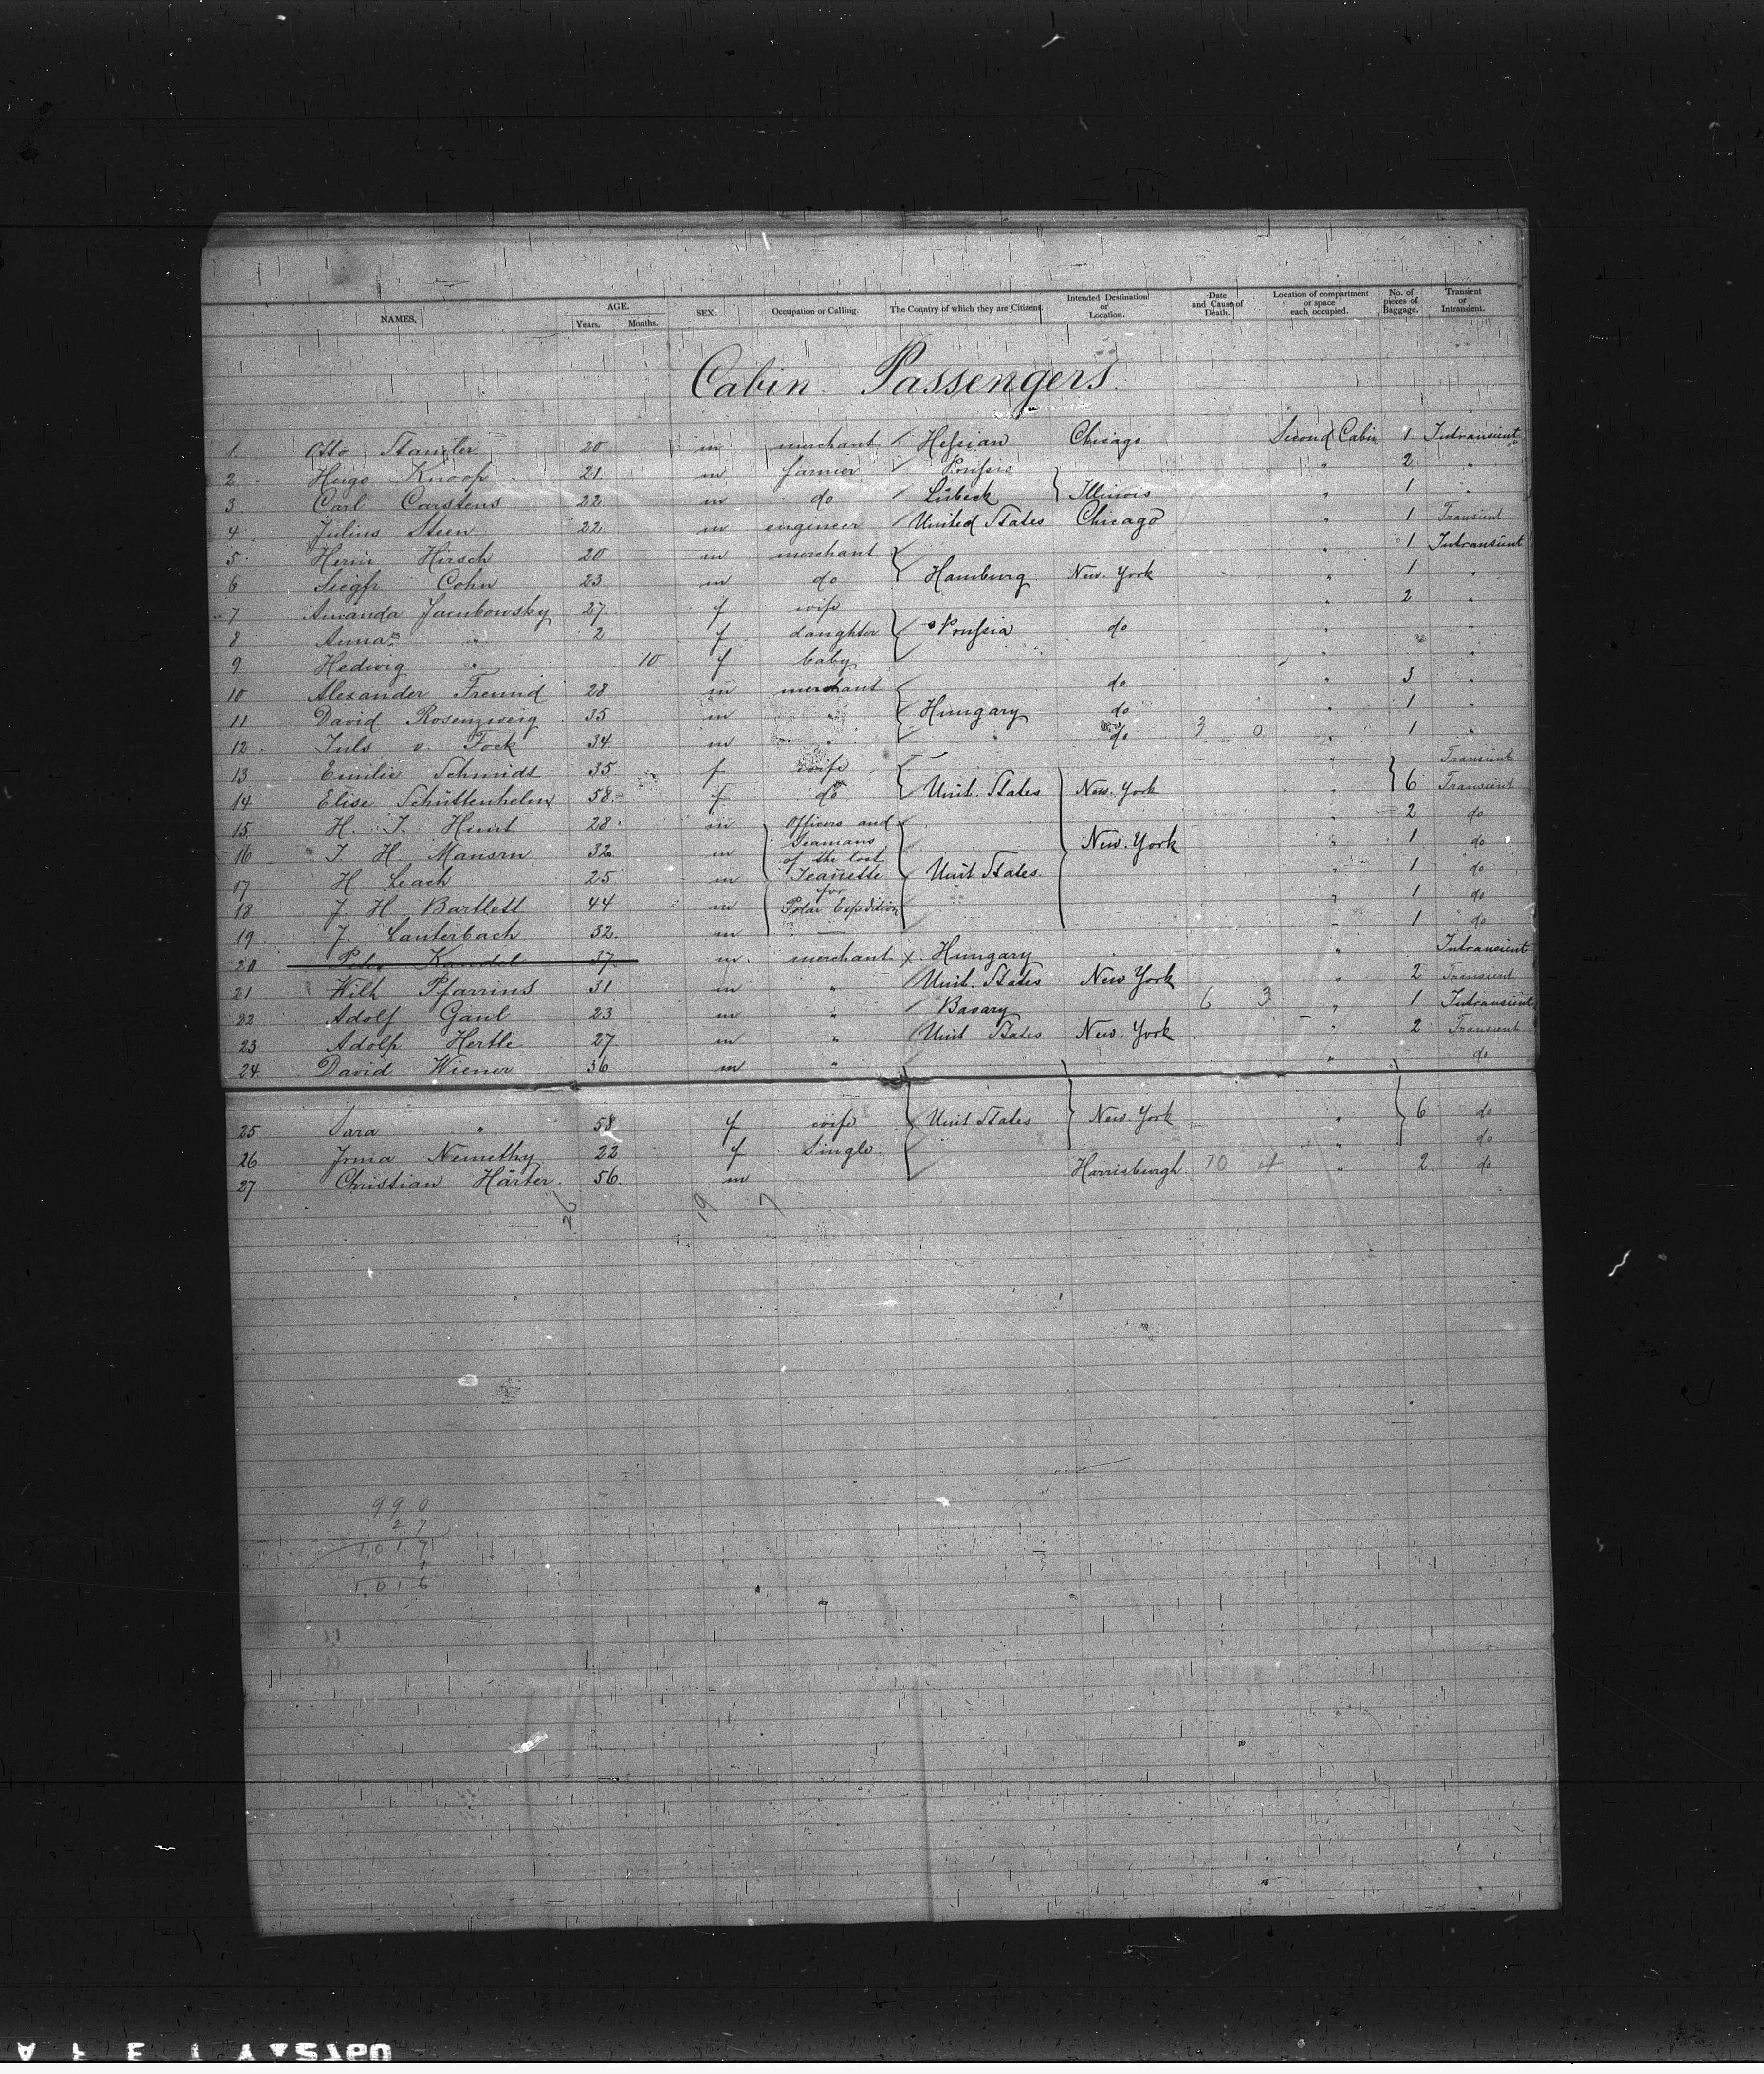 NAMES, AGE. Years. Months. SEX. Occupation or Calling. The Country of which they are Citizens. Intended Destination or Location. Date and Cause of Death. Location of compartment or space each occupied. No. of pieces of Baggage. Transient or Intransient.
Cabin Passengers
1. Otto Stamler 20 m merchant Hessian Chicago Second Cabin 1 Intransient
2 Hugo Knoop 21 m farmer Prussia " 2 "
3 Carl Carstens 22 m do Lübeck Illinois " 1 "
4 Julius Steen 22 m engineer United States Chicago " 1 Transient
5 Hirsch 20 m merchant " 1 Intransient
6 Siegfr. Cohn 23 m do Hamburg New York " 1 "
7 Amanda Jacubowsky 27 f wife " 2 "
8 Anna " 2 f daughter Prussia do " "
9 Hedwig " 10 f baby " "
10 Alexander Freund 28 m merchant do " 3 "
11 David Rosenzweig 35 m " Hungary do " 1 "
12 Juls v. Fock 34 m " do 3 0 " 1 "
13 Emilie Schmidt 35 f wife " Transient
14 Elise Schüttenhelm 58 f do Unit. States New York 6 Transient
15 H. J. Hunt 28 m Officers and " 2 do
16 J H. Mansen 32 m Seamans of the lost New York " 1 do
17 H Leach 25 m Jeanette Unit States " 1 do
18 J H Bartlett 44 m for Polar Expedition " 1 do
19 J. Lauterbach 32 m " 1 do
20 Peter Kandel 37 m merchant x Hungary " Intransient
21 Wilh Pfarrius 31 m " Unit. States New York " 2 Transient
22 Adolf Ganl 23 m " Bavary 6 3 " 1 Intransient
23 Adolf Hertle 27 m " Unit States New York " 2 Transient
24 David Wiener 36 m " " do
25 Sara " 58 f wife Unit States New York " 6 do
26 Irma Nemethy 22 f Single " do
27 Christian Härter 56 m Harrisburgh 10 4 " 2 do
26 19 7
990
27
1017
1
1016